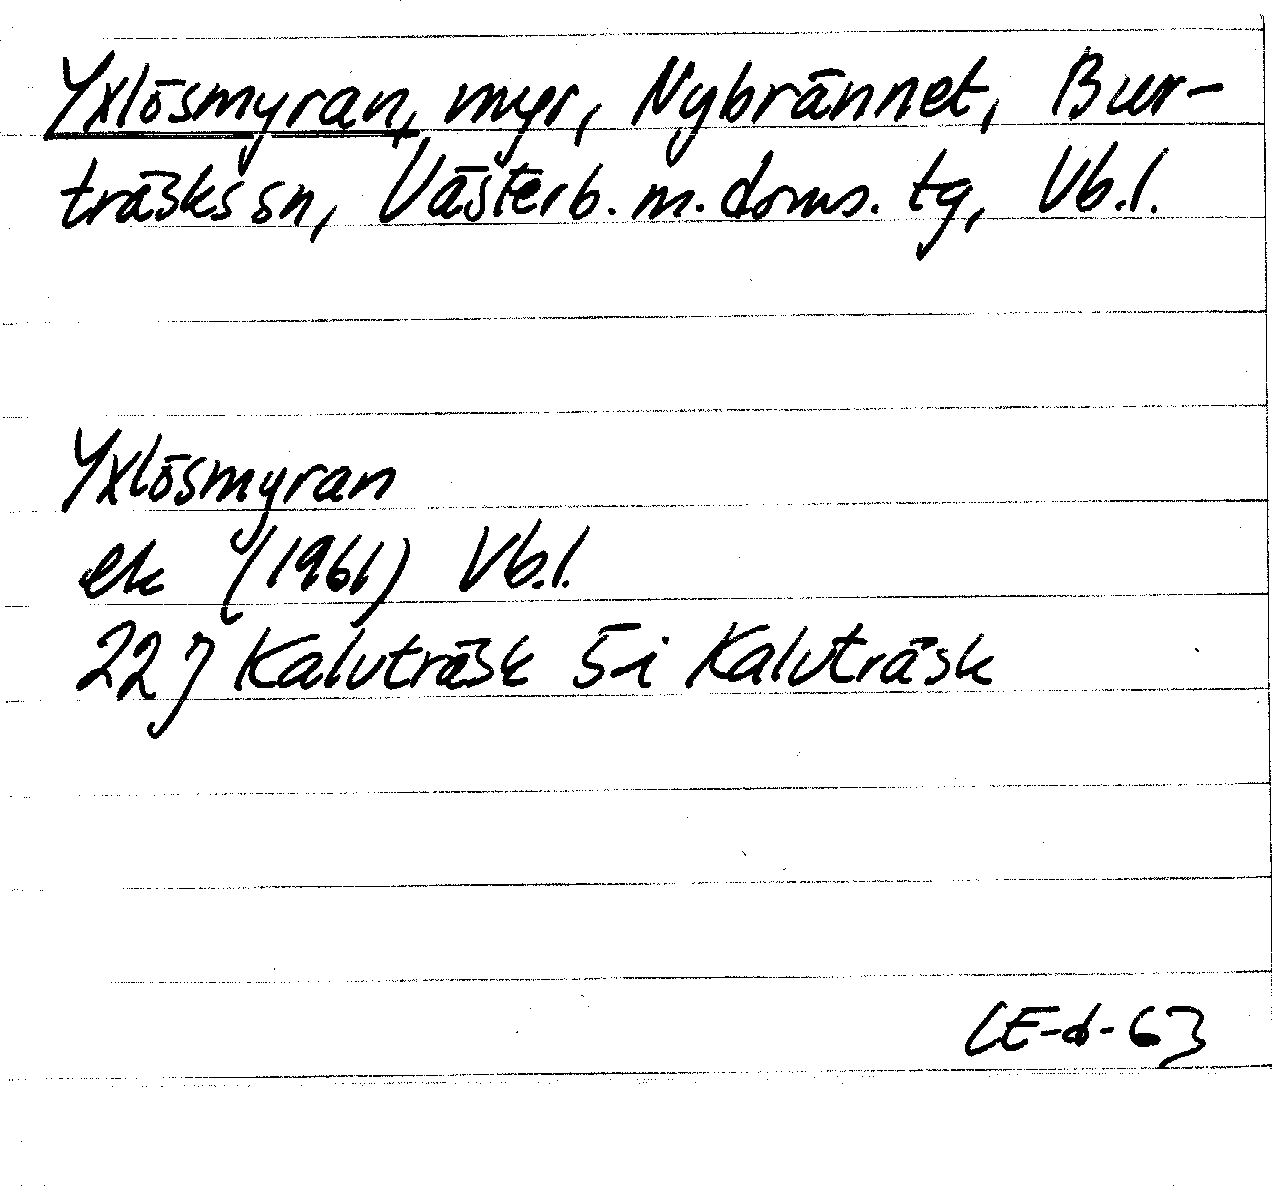 Yxlösmyran, myr, Nybrännet, Bur-
träsks sn, Västerb. m. doms. tg, Vb.l.
Yxlösmyran
ek (1961) Vb.l.
22 J Kalvträsk 5 i Kalvträsk
CE-d-63